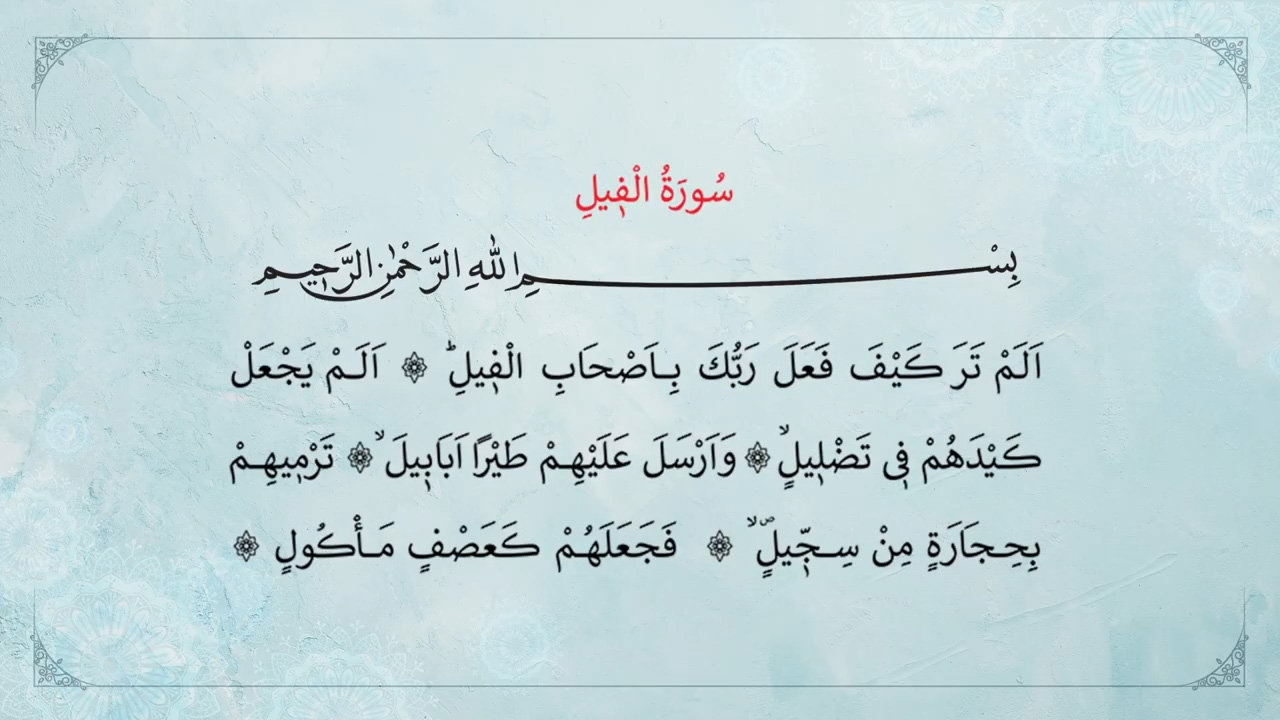 سُورَةُ الْفٖيلِ
بِسْمِ اللهِ الرَّحْمٰنِ الرَّحٖيمِ
اَلَمْ تَرَ كَيْفَ فَعَلَ رَبُّكَ بِاَصْحَابِ الْفٖيلِؕ ۞ اَلَمْ يَجْعَلْ
كَيْدَهُمْ فٖى تَضْلٖيلٍۙ ۞ وَاَرْسَلَ عَلَيْهِمْ طَيْرًا اَبَابٖيلَۙ ۞ تَرْمٖيهِمْ
بِحِجَارَةٍ مِنْ سِجّٖيلٍۙۖ ۞ فَجَعَلَهُمْ كَعَصْفٍ مَأْكُولٍ ۞